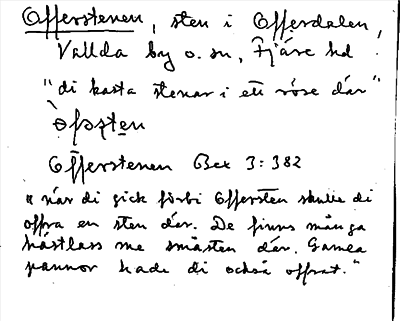 Offerstenen, sten i Offerdalen,
Vallda by o. sn, Fjäre hd
"di kasta stenar i ett röse där"
Offerstenen Bex 3:382
"när di gick förbi Offersten skulle di
offra en sten där. De finns många
hästlass me småsten där. Gamla
pannor hade di också offrat."